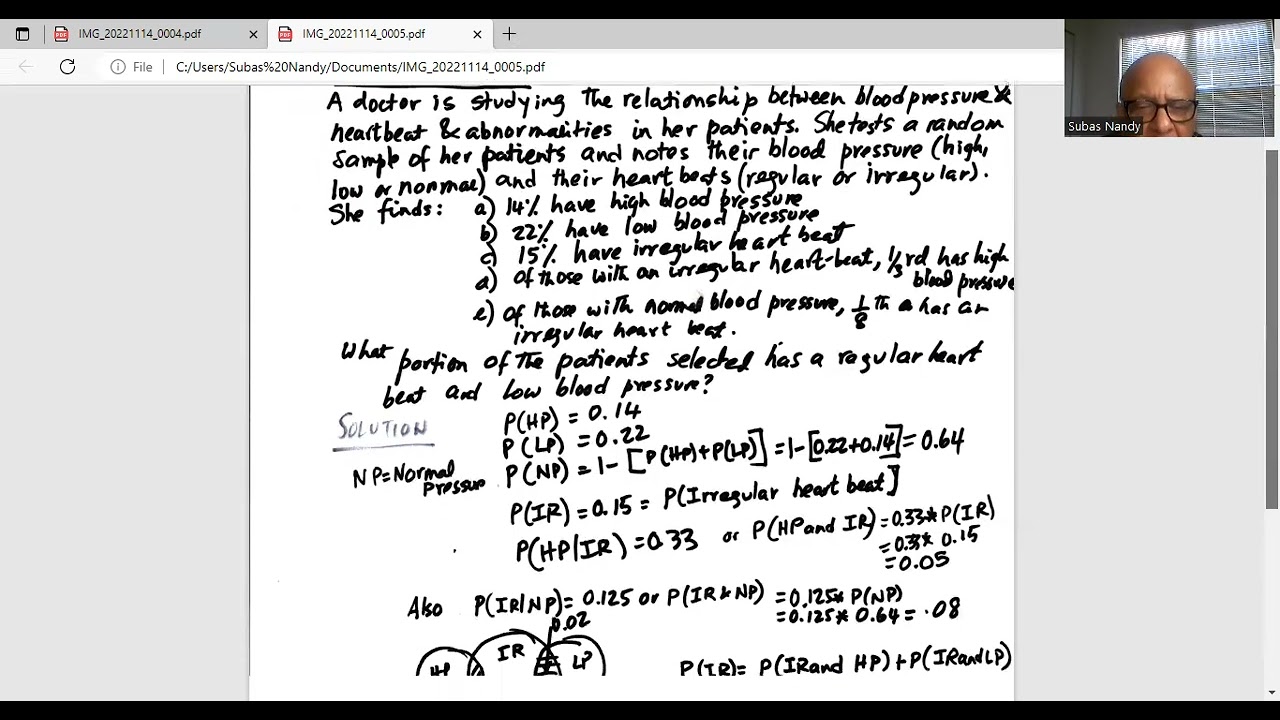 IMG_20221114_0004.pdf
IMG_20221114_0005.pdf
File C:/Users/Subas%20Nandy/Documents/IMG_20221114_0005.pdf
Subas Nandy
A doctor is studying the relationship between blood pressure &
heartbeat & abnormalities in her patients. She tests a random
sample of her patients and notes their blood pressure (high,
low or normal) and their heart beats (regular or irregular).
She finds: a) 14% have high blood pressure
b) 22% have low blood pressure
c) 15% have irregular heart beat
d) of those with an irregular heart-beat, 1/3 rd has high
blood pressure
e) of those with normal blood pressure, 1/8 th a has an
irregular heart beat.
What portion of the patients selected has a regular heart
beat and low blood pressure?
SOLUTION
P(HP) = 0.14
P(LP) = 0.22
NP=Normal Pressure
P(NP) = 1-[P(HP)+P(LP)] = 1-[0.22+0.14] = 0.64
P(IR) = 0.15 = P(Irregular heart beat]
P(HP|IR) = 0.33 or P(HP and IR) = 0.33* P(IR)
= 0.33* 0.15
= 0.05
Also P(IR|NP) = 0.125 or P(IR & NP) = 0.125* P(NP)
= 0.125* 0.64 = .08
0.02
HP IR LP
P(IR) = P(IR and HP) + P(IR and LP)